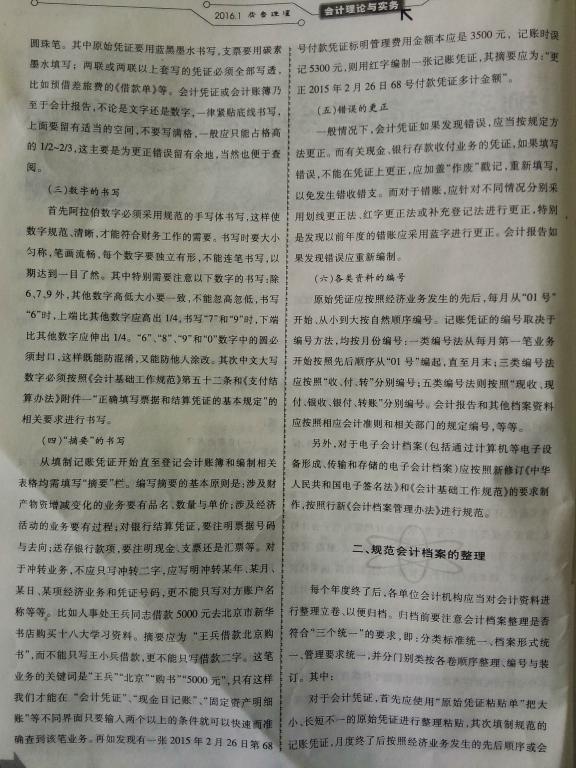 2016.1
会计理论与实务
圆珠笔。其中原始凭证要用蓝黑墨水书写,支票要用碳素
墨水填写;两联或两联以上套写的凭证必须全部写透,
比如预借差旅费的《借款单》等。会计凭证或会计账簿乃
至于会计报告,不论是文字还是数字,一律紧贴底线书写,
上面要留有适当的空间,不要写满格,一般应只能占格高
的1/2~2/3,这主要是为更正错误留有余地,当然也便于查
阅。
(三)数字的书写
首先阿拉伯数字必须采用规范的手写体书写,这样使
数字规范、清晰,才能符合财务工作的需要。书写时要大小
匀称,笔画流畅,每个数字要独立有形,不能连笔书写,以
期达到一目了然。其中特别需要注意以下数字的书写;除
6、7、9外,其他数字高低大小要一致,不能忽高忽低,书写
“6”时,上端比其他数字应高出1/4。书写“7”和“9”时,下端
比其他数字应伸出1/4。“6”、“8”、“9”和“0”数字中的圆必
须封口,这样既能防混淆,又能防他人涂改。其次中文大写
数字必须按照《会计基础工作规范》第五十二条和《支付结
算办法》附件一“正确填写票据和结算凭证的基本规定”的
相关要求进行书写。
(四)“摘要”的书写
从填制记账凭证开始直至登记会计账簿和编制相关
表格均需填写“摘要”栏。编写摘要的基本原则是:涉及财
产物资增减变化的业务要有品名、数量与单价;涉及经济
活动的业务要有过程;对银行结算凭证,要注明票据号码
与去向;送存银行款项,要注明现金、支票还是汇票等。对
于冲转业务,不应只写冲转二字,应写明冲转某年、某月、
某日、某项经济业务和凭证号码,更不能只写对方账户名
称等等。比如人事处王兵同志借款5000元去北京市新华
书店购买十八大学习资料。摘要应为“王兵借款北京购
书”,而不能只写王小兵借款,更不能只写借款二字。这笔
业务的关键词是“王兵”“北京”“购书”“5000元”,只有这样
我们才能在“会计凭证”、“现金日记账”、“固定资产明细
账”等不同界面只要输入两个以上的条件就可以快速而准
确查到该笔业务。再如发现有一张2015年2月26日第68
号付款凭证标明管理费用金额本应是3500元,记账时误
记5300元,则用红字编制一张记账凭证,其摘要应为:“更
正2015年2月26日68号付款凭证多计金额”。
(五)错误的更正
一般情况下,会计凭证如果发现错误,应当按规定方
法更正。而有关现金、银行存款收付业务的凭证,如果填写
错误,不能在凭证上更正,应加盖“作废”戳记,重新填写,
以免发生错收错支。而对于错账,应针对不同情况分别采
用划线更正法、红字更正法或补充登记法进行更正,特别
是发现以前年度的错账应采用蓝字进行更正。会计报告如
果发现错误应重新编制。
(六)各类资料的编号
原始凭证应按照经济业务发生的先后,每月从“01号”
开始、从小到大按自然顺序编号。记账凭证的编号取决于
编号方法,均按月份编号:一类编号法从每月第一笔业务
开始按照先后顺序从“01号”编起,直至月末;三类编号法
应按照“收、付、转”分别编号;五类编号法则按照“现收、现
付、银收、银付、转账”分别编号。会计报告和其他档案资料
应按照相应会计准则和相关部门的规定编号,等等。
另外,对于电子会计档案(包括通过计算机等电子设
备形成、传输和存储的电子会计档案)应按照新修订《中华
人民共和国电子签名法》和《会计基础工作规范》的要求制
作,按照行新《会计档案管理办法》进行规范。
二、规范会计档案的整理
每个年度终了后,各单位会计机构应当对会计资料进
行整理立卷、以便归档。归档前要注意会计档案整理是否
符合“三个统一”的要求,即:分类标准统一、档案形式统
一、管理要求统一,并分门别类按各卷顺序整理、编号与装
订。其中:
对于会计凭证,首先应使用“原始凭证粘贴单”把大
小、长短不一的原始凭证进行整理粘贴,其次填制规范的
记账凭证,月度终了后按照经济业务发生的先后顺序或会